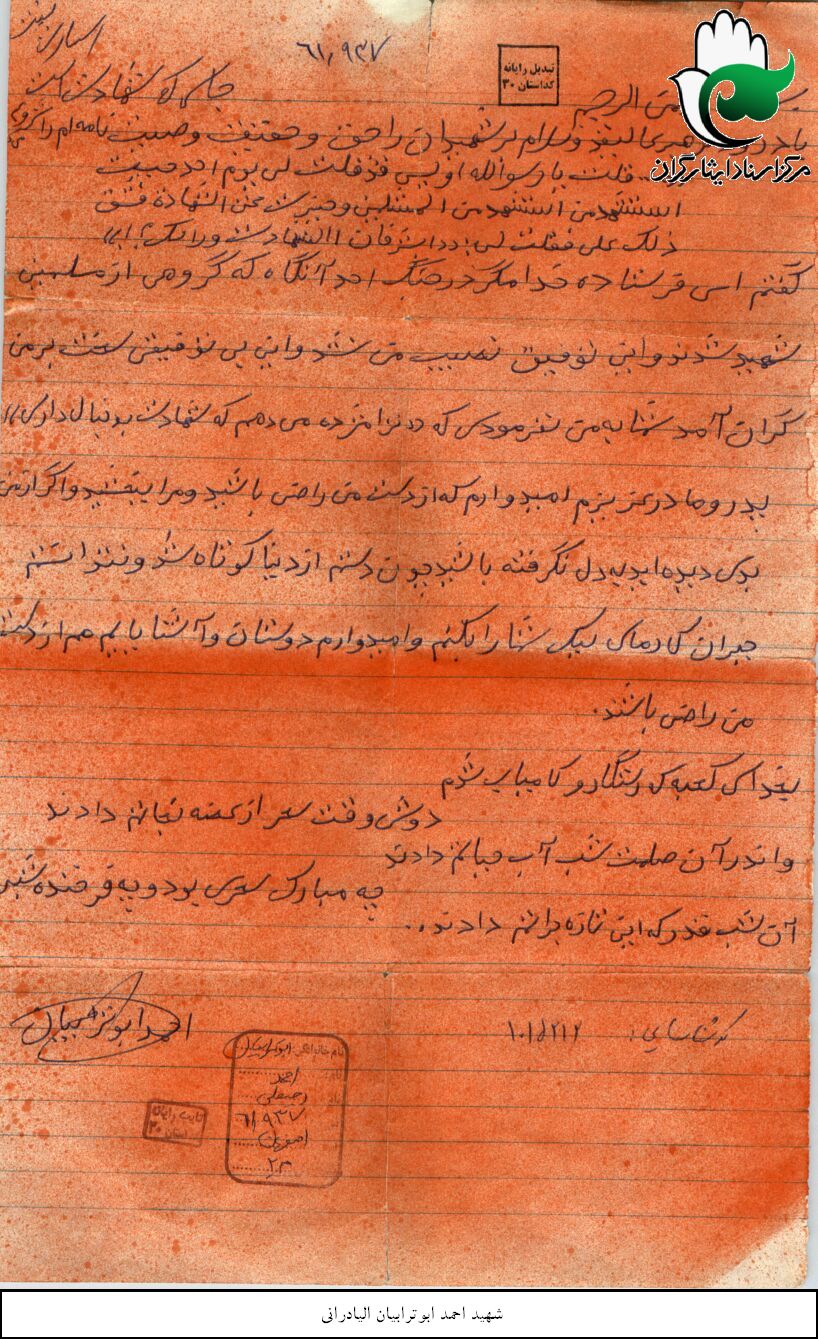 استان یزد
۶۱٫۹۳۷
تبدیل رایانه
کد استان ۳۰
مرکز اسناد ایثارگران
الرحیم
که شهادت است
یاد و سلام بر شهیدان راه حق و حقیقت وصیت نامه ام را شروع
قلت یا رسول الله او لیس قد قلت لی یوم احد حیث
استشهد من استشهد من المسلمین و حیزت عنی الشهادة فشق
ذلک علی فقلت لی ابشر فان الشهادت ورائک
گفتم ای فرستاده خدا مگر در جنگ احد آنگاه که گروهی از مسلمین
شهید شدند و این توفیق نصیب من نشد و این بی توفیقی سخت بر من
گران آمد شما به من نفرمودی که «ترا مژده می دهم که شهادت بدنبال داری»
پدر و مادر عزیزم امیدوارم که از دست من راضی باشید و مرا ببخشید و اگر از من
بدی دیده اید به دل نگرفته باشید چون دستم از دنیا کوتاه شد و نتوانستم
جبران کارهای نیک شما را بکنم و امیدوارم دوستان و آشنایانم هم از دست
من راضی باشند.
بخدای کعبه که رستگار و کامیاب شدم
دوش وقت سحر از غصه نجاتم دادند
واندر آن ظلمت شب آب حیاتم دادند
چه مبارک سحری بود و چه فرخنده شبی
آن شب قدر که این تازه براتم دادند..
احمد ابوترابیان
کد شناسایی: ۱۰۱۵۲۱۲
نام خانوادگی: ابوترابیان
احمد
رجبعلی
۶۱٫۹۳۷
اصفهان
۲۳
تایپ رایانه
استان ۳۰
شهید احمد ابوترابیان الیادرانی